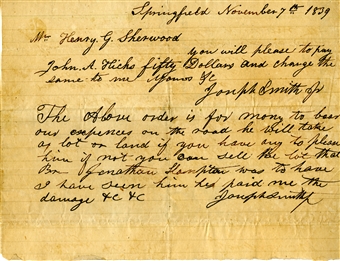 Springfield November 7th 1839
Mr Henry. G. Sherwood
you will please to pay
John. A. Hicks fifty Dollers and charge the
same to me Yours &c
Joseph Smith Jr
The Above order is for mony to bear
our expences on the road he will take
a lot or land if you have any to please
him if not you can sell the lot that
Br Jonathan Hampton was to have
I have seen him he paid me the
damage &C &C
Joseph Smith Jr